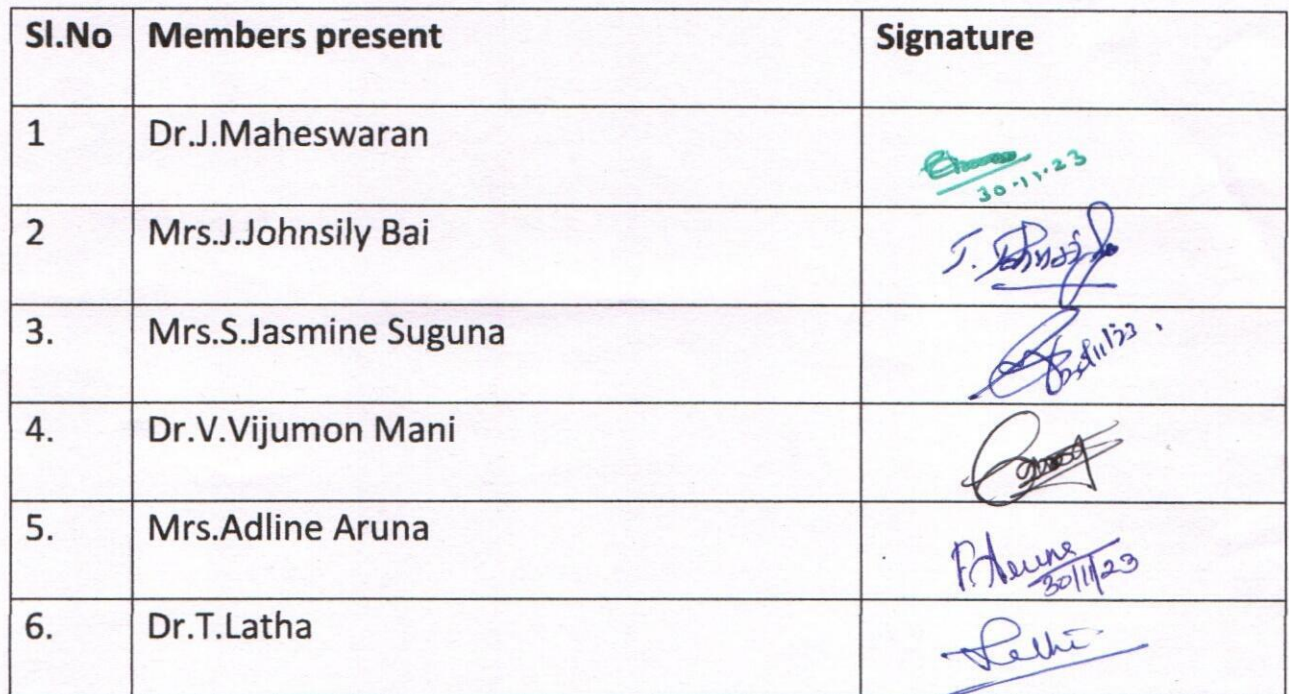 Sl.No Members present Signature
1 Dr.J.Maheswaran
30.11.23
2 Mrs.J.Johnsily Bai
3. Mrs.S.Jasmine Suguna
30/11/23
4. Dr.V.Vijumon Mani
5. Mrs.Adline Aruna
P. Aruna
30/11/23
6. Dr.T.Latha